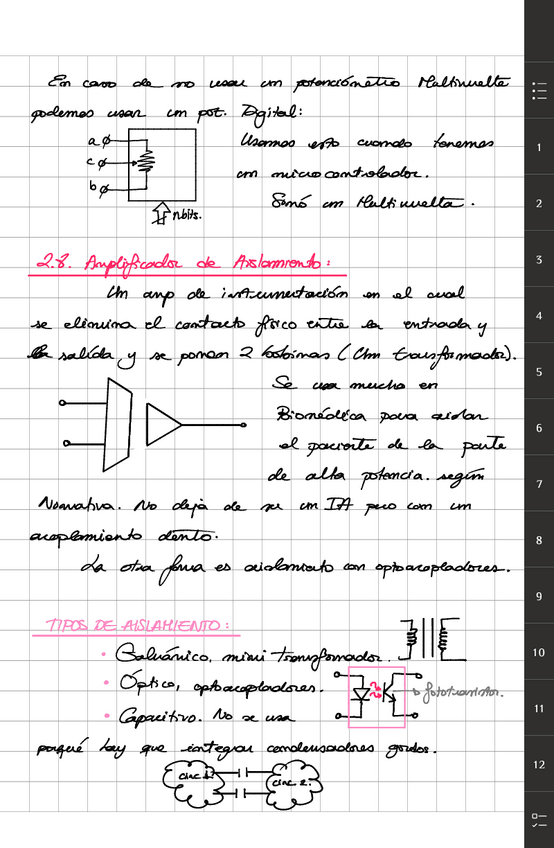 En caso de no usar un potenciómetro Multivuelta
podemos usar un pot. Digital:
a
c
b
nbits.
Usamos esto cuando tenemos
un microcontrolador.
Sinó un Multivuelta.
2.8. Amplificador de Aislamiento:
Un amp de instrumentación en el cual
se elimina el contacto físico entre la entrada y
la salida y se ponen 2 bobinas (Um transformador).
Se usa mucho en
Biomédica para aislar
el paciente de la parte
de alta potencia. según
Normativa. No deja de ser un IA pero com un
acoplamiento dento.
La otra forma es aislamiento con optoacopladores.
TIPOS DE AISLAMIENTO:
• Galvánico, mini transformador.
• Óptico, optoacopladores.
fototransistor.
• Capacitivo. No se usa
porqué hay que integrar condensadores gordos.
circ 1.
circ 2.
1
2
3
4
5
6
7
8
9
10
11
12